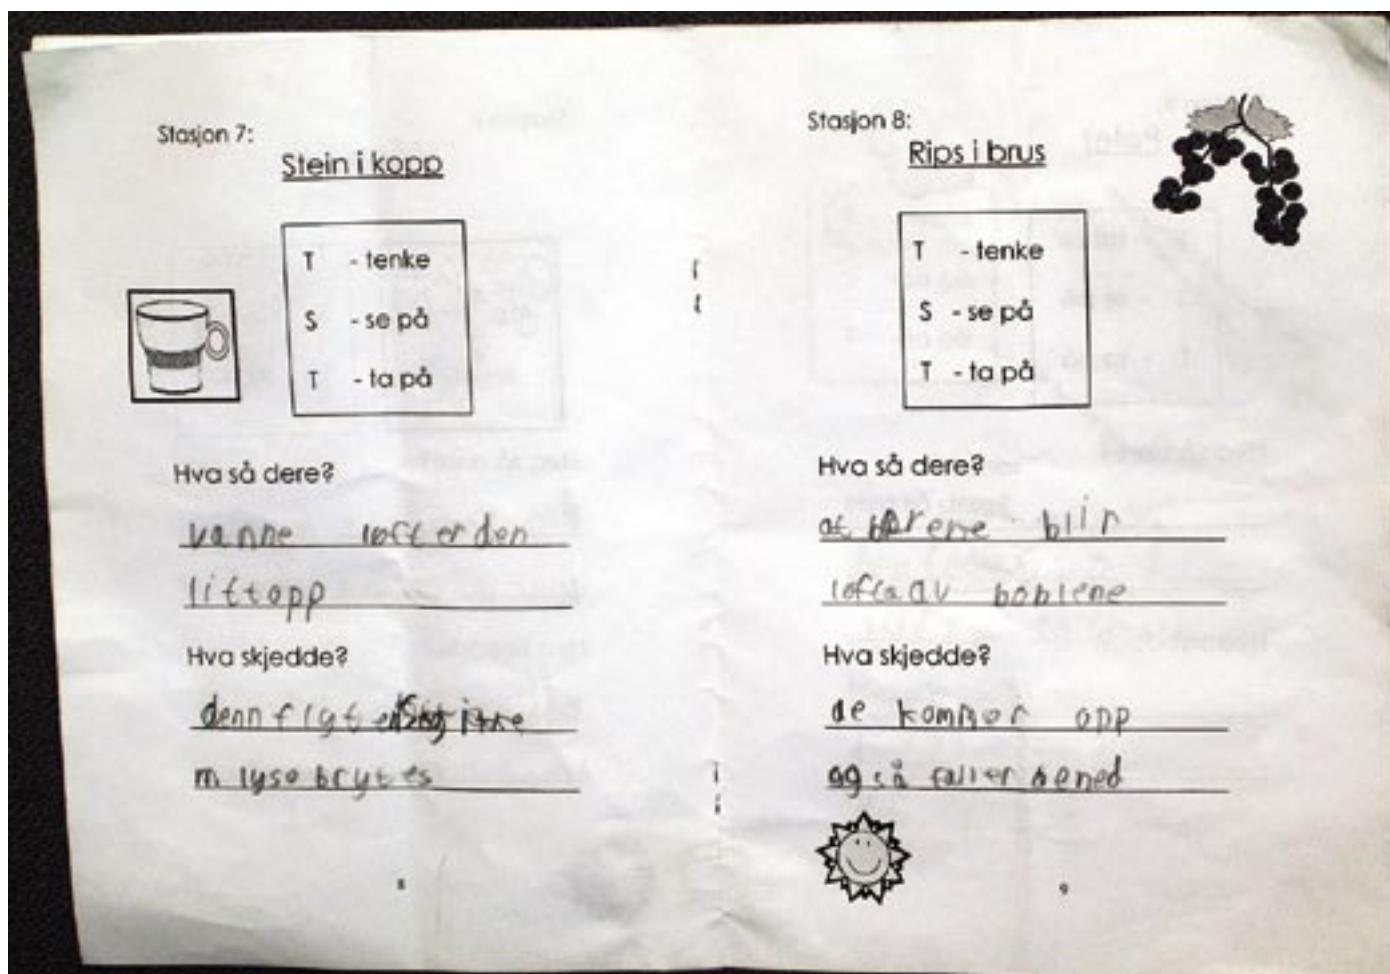 Stasjon 7:
Stein i kopp
T - tenke
S - se på
T - ta på
Hva så dere?
vanne løfter den
littopp
Hva skjedde?
denn flyter seg ikke
m lyse brytes
8
Stasjon 8:
Rips i brus
T - tenke
S - se på
T - ta på
Hva så dere?
at bærene blir
løfta av boblene
Hva skjedde?
de kommer opp
og så faller de ned
9